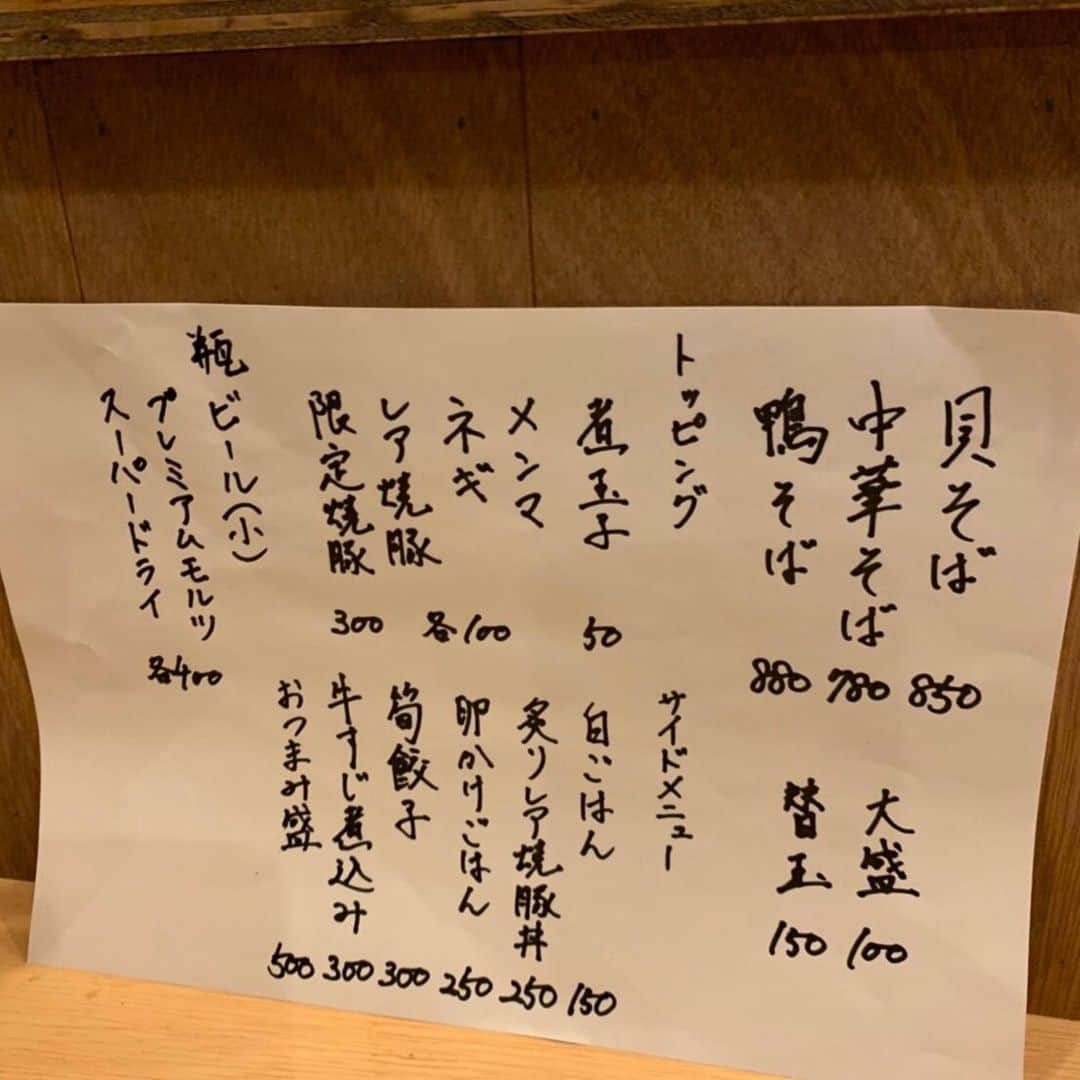 貝そば 850
中華そば 780
鴨そば 880
大盛 100
替玉 150
トッピング
煮玉子 50
メンマ
ネギ
レア焼豚
各100
限定焼豚 300
サイドメニュー
白ごはん 150
炙りレア焼豚丼 250
卵かけごはん 250
筍餃子 300
牛すじ煮込み 300
おつまみ盛 500
瓶ビール(小)
プレミアムモルツ
スーパードライ
各400